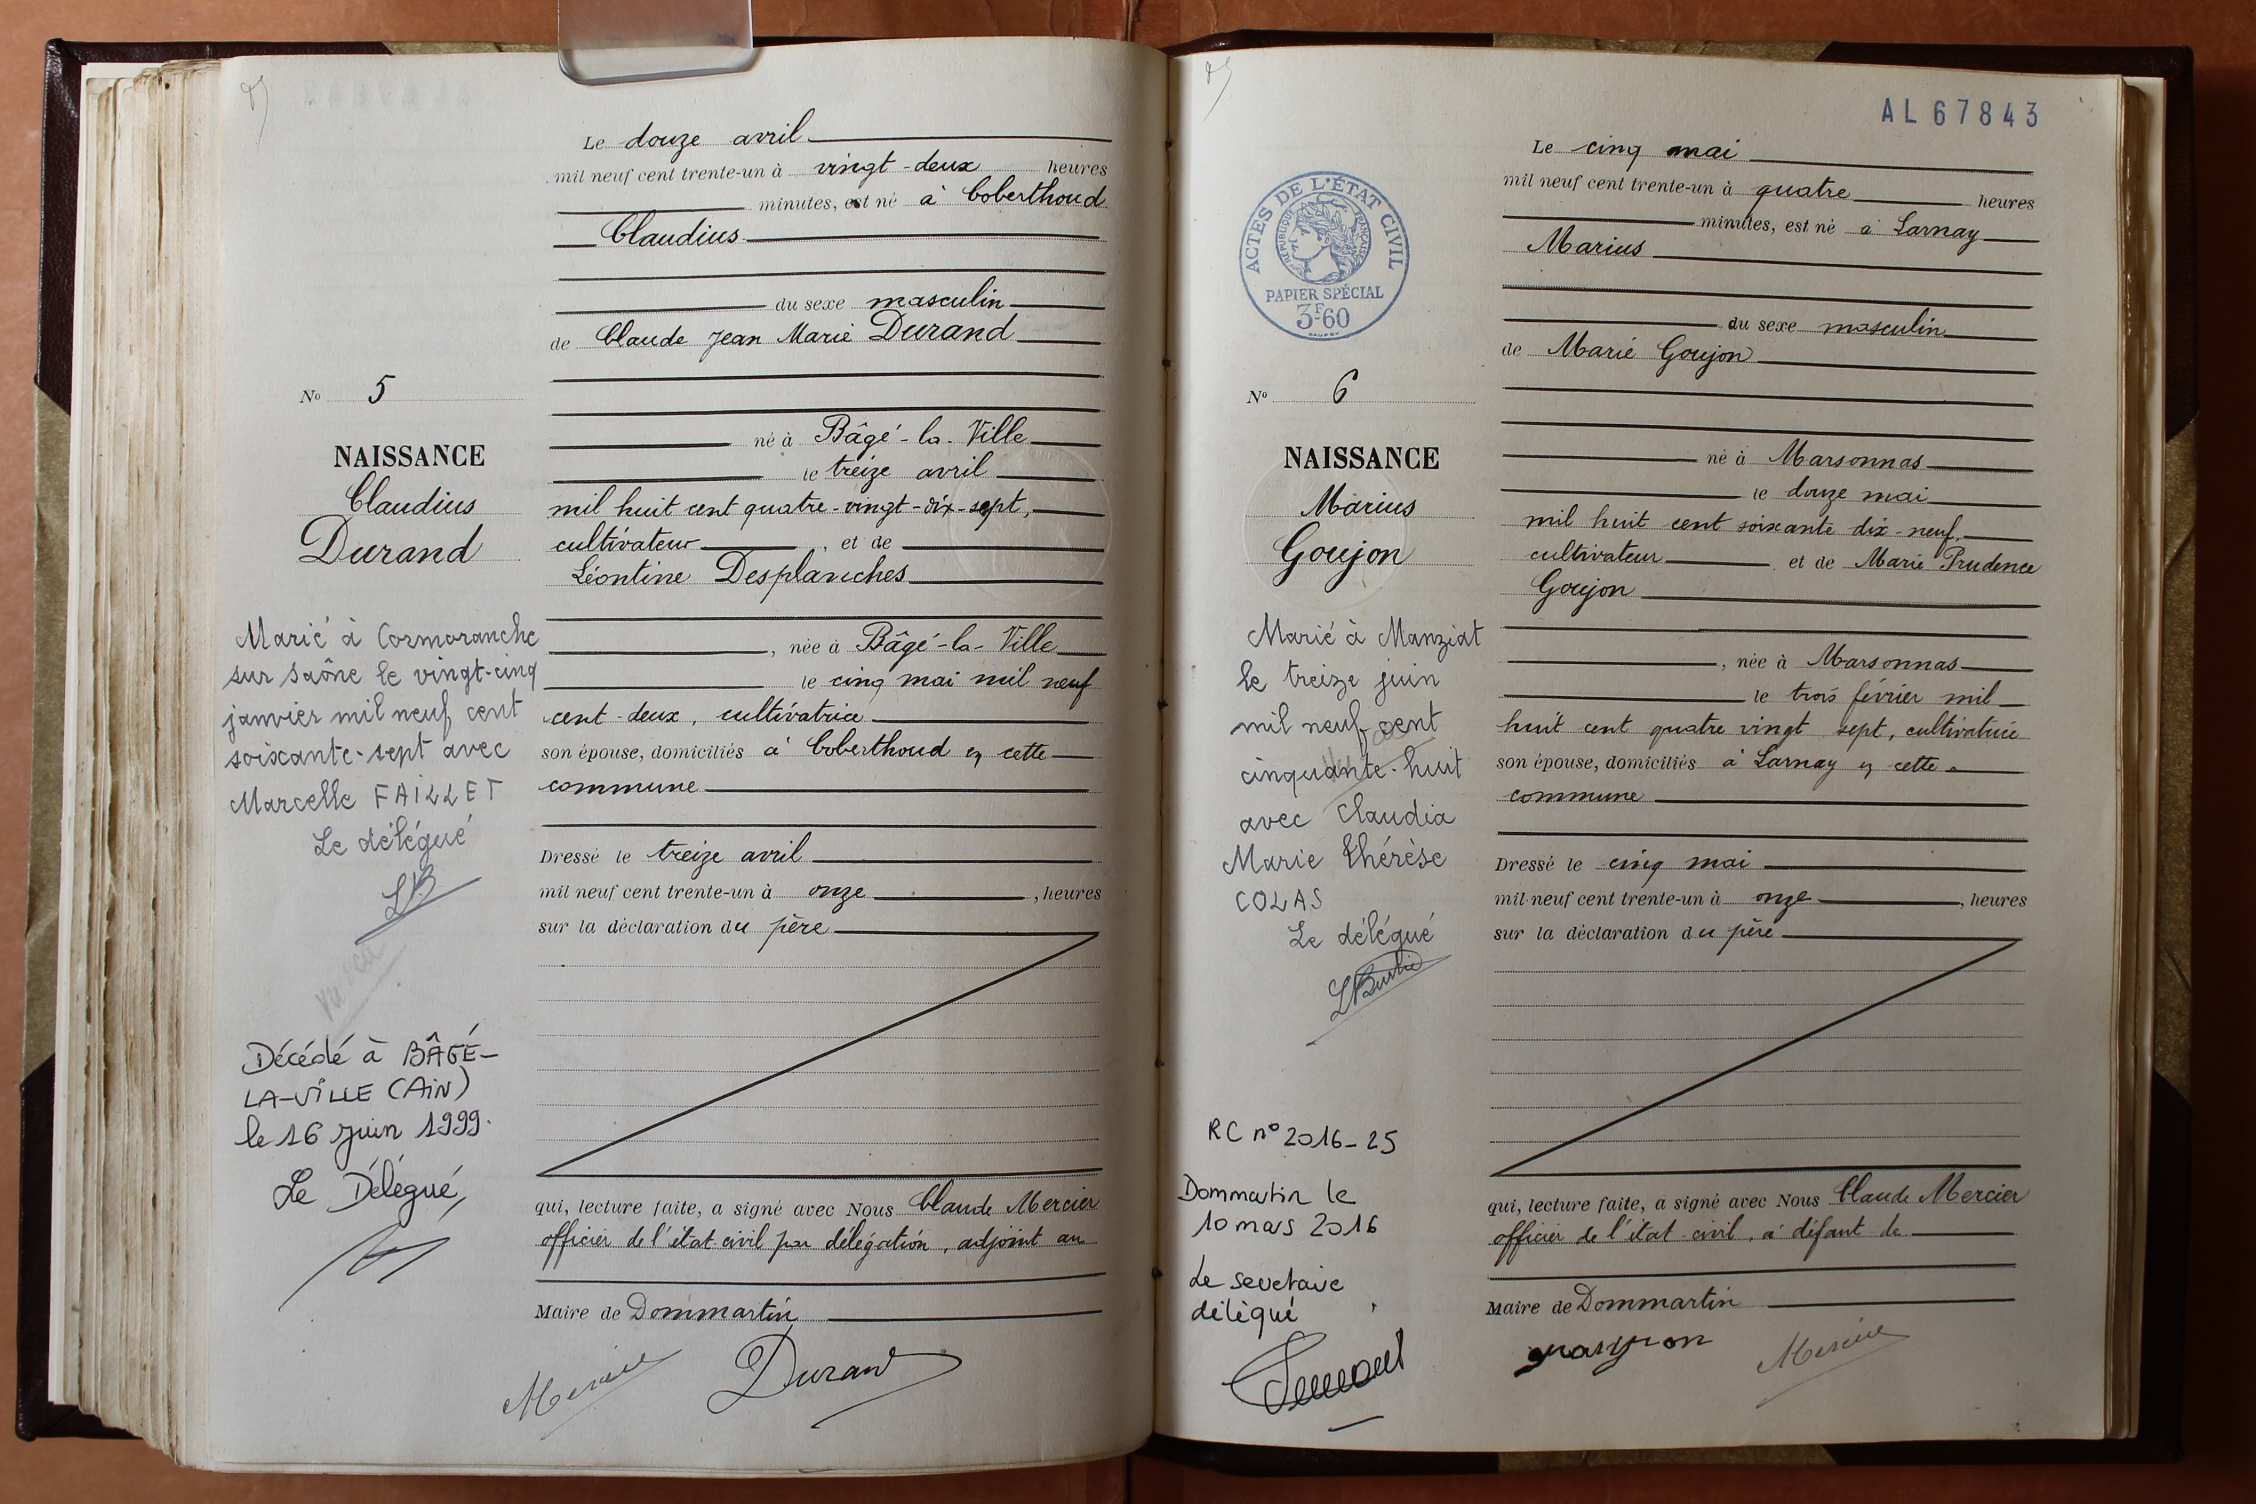 Le douze avril
mil neuf cent trente-un à vingt-deux heures
minutes, est né à Coberthoud
Claudius
du sexe masculin
de Claude Jean Marie Durand
né à Bâgé-la-Ville
le treize avril
mil huit cent quatre-vingt-dix-sept,
cultivateur, et de
Léontine Desplanches
, née à Bâgé-la-Ville
le cinq mai mil neuf
cent-deux, cultivatrice
son épouse, domiciliés à Coberthoud en cette
commune
Dressé le treize avril
mil neuf cent trente-un à onze, heures
sur la déclaration du père
qui, lecture faite, a signé avec Nous Claude Mercier
officier de l'état-civil par délégation, adjoint au
Maire de Dommartin
Mercier Durand
No 5
NAISSANCE
Claudius
Durand
Marié à Cormoranche
sur Saône le vingt-cinq
janvier mil neuf cent
soixante-sept avec
Marcelle FAILLET
Le délégué
LB
Décédé à BÂGÉ-
LA-VILLE (AIN)
le 16 juin 1999.
Le Délégué,
AL 67843
Le cinq mai
mil neuf cent trente-un à quatre heures
minutes, est né à Larnay
Marius
du sexe masculin
de Marie Goujon
né à Marsonnas
le douze mai
mil huit cent soixante dix-neuf,
cultivateur et de Marie Prudence
Goujon
, née à Marsonnas
le trois février mil
huit cent quatre vingt sept, cultivatrice
son épouse, domiciliés à Larnay en cette
commune
Dressé le cinq mai
mil neuf cent trente-un à onze, heures
sur la déclaration du père
qui, lecture faite, a signé avec Nous Claude Mercier
officier de l'état-civil, à défaut de
Maire de Dommartin
Mercier
ACTES DE L'ÉTAT CIVIL
RÉPUBLIQUE FRANÇAISE
PAPIER SPÉCIAL
3F60
No 6
NAISSANCE
Marius
Goujon
Marié à Manziat
le treize juin
mil neuf cent
cinquante-huit
avec Claudia
Marie Thérèse
COLAS
Le délégué
RC n° 2016-25
Dommartin le
10 mars 2016
Le secretaire
délégué